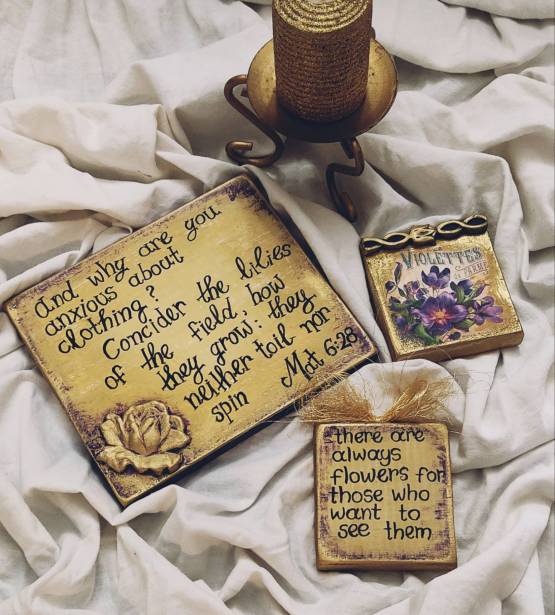 and why are you
anxious about
clothing?
Concider the lilies
of the field, how
they grow: they
neither toil nor
spin
Mat 6:28
VIOLETTES
there are
always
flowers for
those who
want to
see them